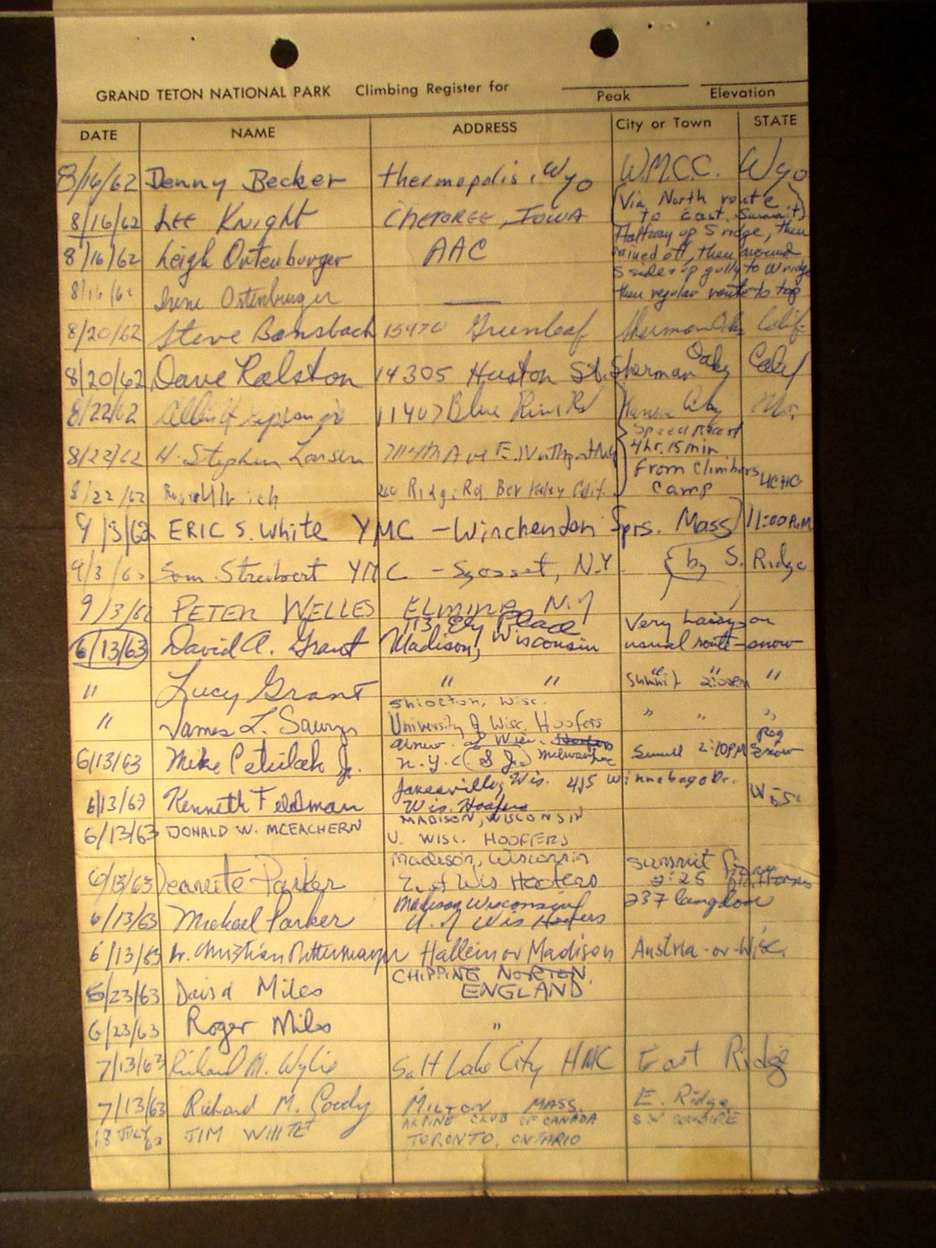 GRAND TETON NATIONAL PARK Climbing Register for
Peak Elevation
DATE NAME ADDRESS City or Town STATE
8/16/62 Denny Becker thermopolis, Wyo W.M.C.C. Wyo
8/16/62 LEE Knight CHEROKEE, IOWA (Via North route to East Summit)
8/16/62 Leigh Ortenburger AAC Halfway up S ridge, then rained off, then around S side & up gully to W ridge then regular route to top
8/16/62 Irene Ortenburger —
8/20/62 Steve Bansbach 15970 Greenleaf Sherman Oaks Calif.
8/20/62 Dave Ralston 14305 Huston St. Sherman Oaks Calif
8/22/62 11407 Blue River Rd Kansas City Mo.
8/22/62 H. Stephen Larsen Speed Record 4 hr. 15 min. From Climbers Camp
8/22/62 Ridge Rd. Berkeley Calif.
9/3/62 ERIC S. White YMC - Winchendon Sprs. Mass 11:00 A.M
9/3/62 Sam Streibert YMC - Syosset, N.Y. {by S. Ridge
9/3/62 PETER WELLES ELMIRA N.Y
6/13/63 David A. Grant 113 Ely Place Madison, Wisconsin Very hairy on usual route - snow
" Lucy Grant " " Summit 2:00PM "
" James L. Shiocton, Wisc. University of Wisc. Hoofers " " "
6/13/63 Mike Petrilak Jr. Univ. of Wisc. Hoofers N.Y.C. Milwaukee Summit 2:10PM Snow
6/13/63 Kenneth Feldman Janesville, Wis. 415 Winnebago Dr. Wis. Hoofers
6/13/63 DONALD W. MCEACHERN MADISON, WISCONSIN U. WISC. HOOFERS
6/13/63 Jeanette Parker Madison, Wisconsin U. of Wis Hoofers Summit 2:25
6/13/63 Michael Parker Madison Wisconsin U. of Wis Hoofers 237 Langdon
6/13/63 Hallein or Madison Austria - or - Wisc.
6/23/63 David Miles CHIPPING NORTON, ENGLAND
6/23/63 Roger Miles "
7/13/63 Richard M. Wylie Salt Lake City HMC East Ridge
7/13/63 Richard M. Goody MILTON MASS. E. Ridge
18 JULY JIM WHITE ALPINE CLUB OF CANADA TORONTO, ONTARIO S W